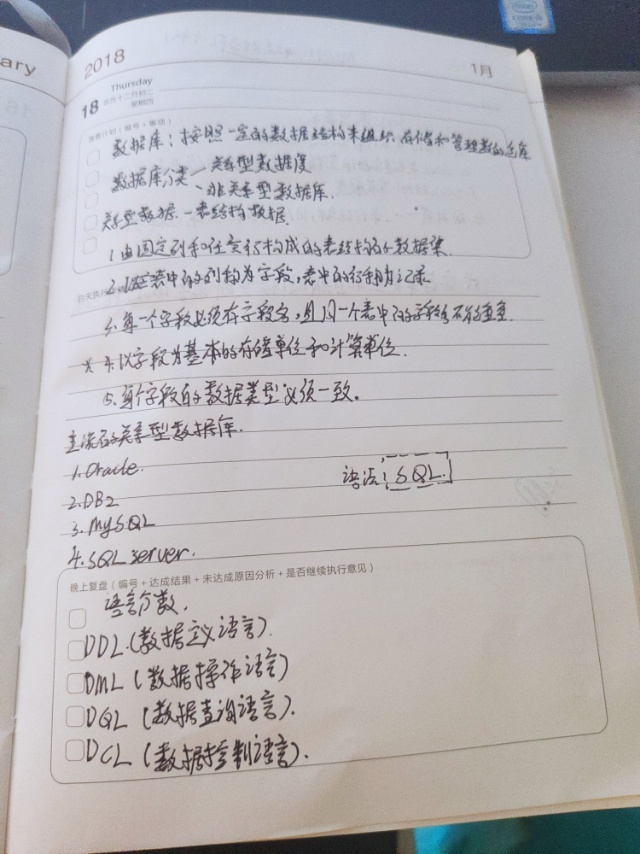 ary
2018
1月
Thursday
18
星期四
数据库：按照一定的数据结构来组织、存储和管理数的仓库
数据库分类 关系型数据库
非关系型数据库.
关系型数据. 一表结构数据.
1.由固定列和任意行构成的表结构的数据集.
2.表中的列称为字段,表中的行称为记录
3.每一个字段必须有字段名,且同一个表中的字段名不能重复.
4.以字段为基本的存储单位和计算单位.
5.每个字段的数据类型必须一致。
主流的关系型数据库.
1.Oracle.
语法: SQL.
2.DB2
3.MySQL
4.SQL server.
晚上复盘（编号 + 达成结果 + 未达成原因分析 + 是否继续执行意见）
语言分类.
DDL.(数据定义语言).
DML (数据操作语言)
DQL (数据查询语言).
DCL (数据控制语言).